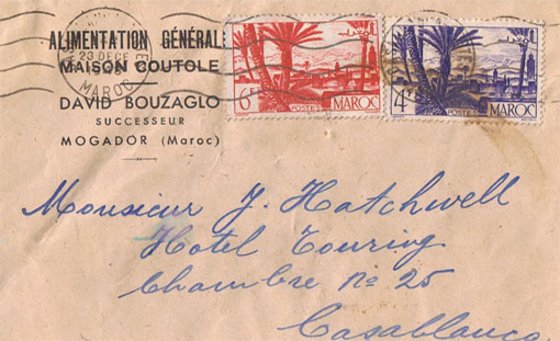 ALIMENTATION GÉNÉRALE
MAISON COUTOLE
DAVID BOUZAGLO
SUCCESSEUR
MOGADOR (Maroc)
23 DECE
MAROC
6F
POSTES
MAROC
4F
POSTES
MAROC
Monsieur J. Hatchwell
Hotel Touring
Chambre No 25
Casablanca